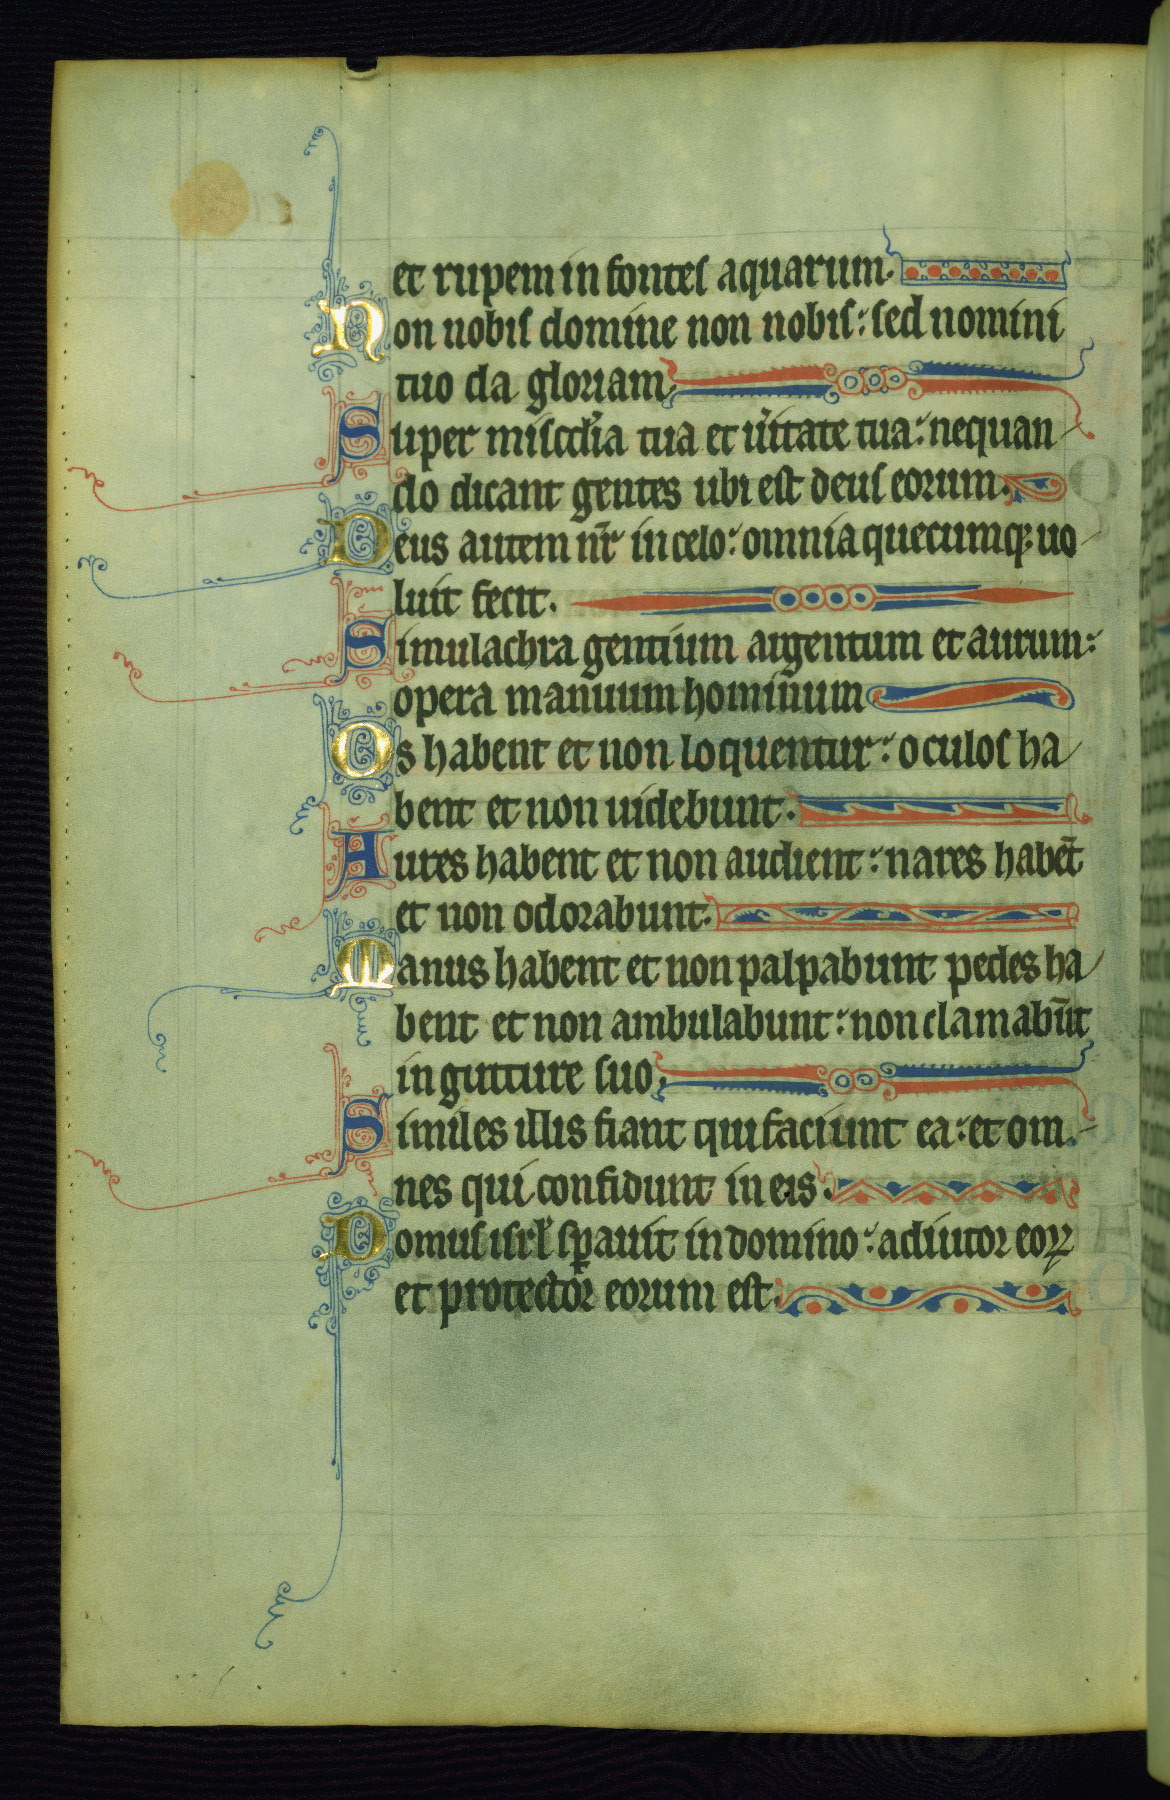 et rupem in fontes aquarum.
Non nobis domine non nobis: sed nomini
tuo da gloriam.
Super misc̄dia tua et ūitate tua: nequan
do dicant gentes ubi est deus eorum.
Deus autem nr̄ in celo: omnia quecumq; uo
luit fecit.
Simulachra gentium argentum et aurum:
opera manuum hominum
Os habent et non loquentur: oculos ha
bent et non uidebunt.
Aures habent et non audient: nares habēt
et non odorabunt.
Manus habent et non palpabunt pedes ha
bent et non ambulabunt: non clamabūt
in gutture suo.
Similes illis fiant qui faciunt ea: et om
nes qui confidunt in eis.
Domus isrl̄ sꝑauit in domino: adiutor eoꝝ
et protector eorum est.